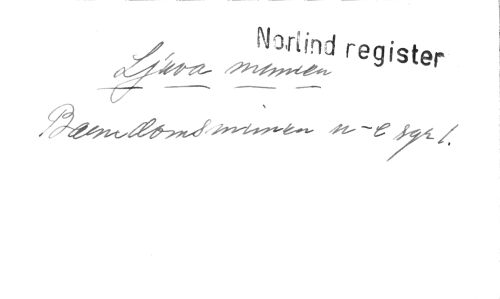 Norlind register
Ljuva minnen
Barndomsminnen